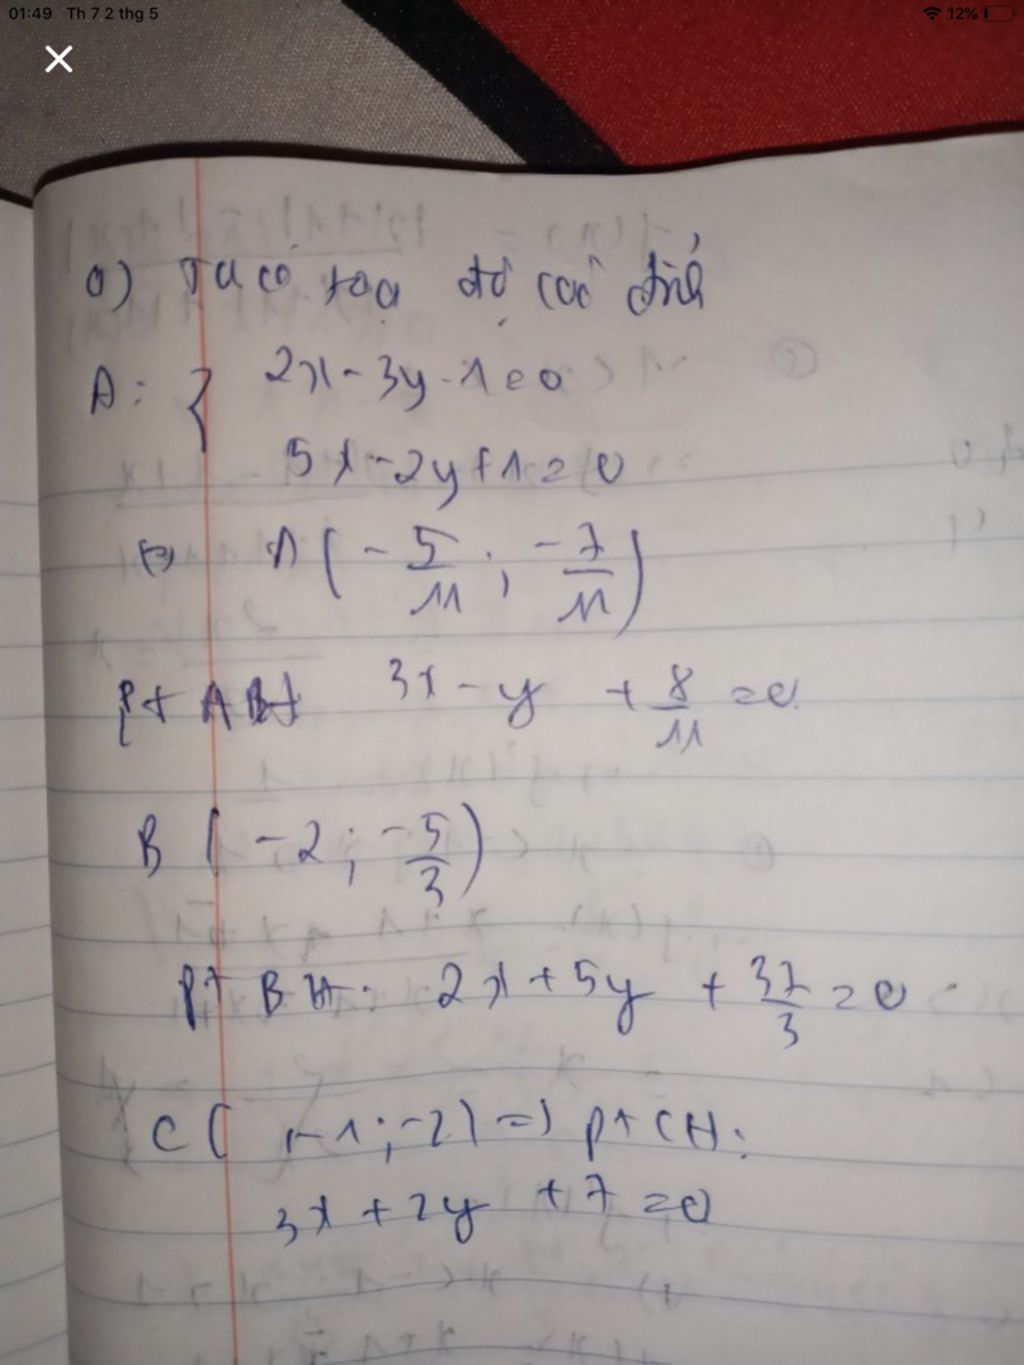 01:49 Th 7 2 thg 5
12%
a) Ta có toạ độ các đỉnh
A: { 2x - 3y - 1 = 0
5x - 2y + 1 = 0
⇔ A (-5/11 ; -7/11)
pt AH 3x - y + 8/11 = 0
B (-2 ; -5/3)
pt BH: 2x + 5y + 37/3 = 0
C (-1 ; -2) => pt CH:
3x + 2y + 7 = 0